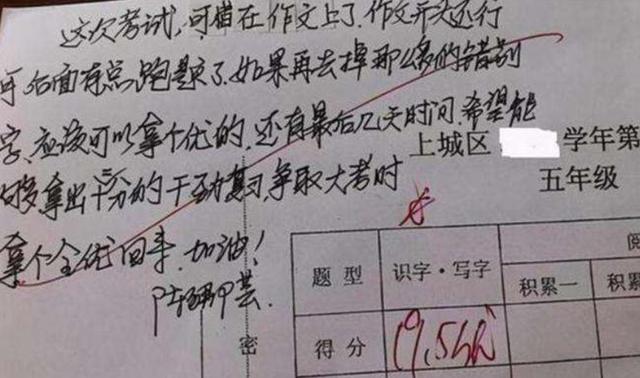 这次考试,可惜在作文上了.作文开头还行
可后面有点跑题了.如果再去掉那么多的错别
字、应该可以拿个优的.还有最后几天时间.希望能
够拿出十二分的干劲复习争取大考时
拿个全优回来.加油!
上城区 学年第
五年级
题型 识字·写字 积累一
得分 19.5
密